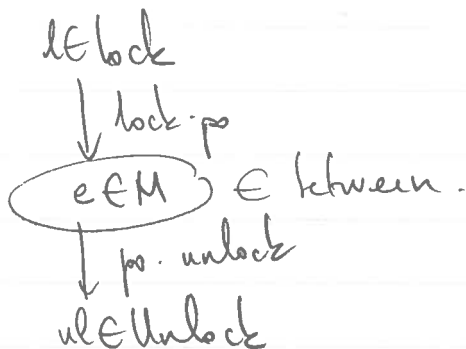 l∈lock
lock.po
e∈M ∈ between.
po.unlock
ul∈Unlock